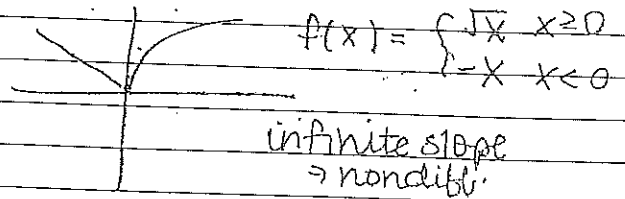 f(x) = { √x x≥0
-x x<0
infinite slope
→ nondiff.